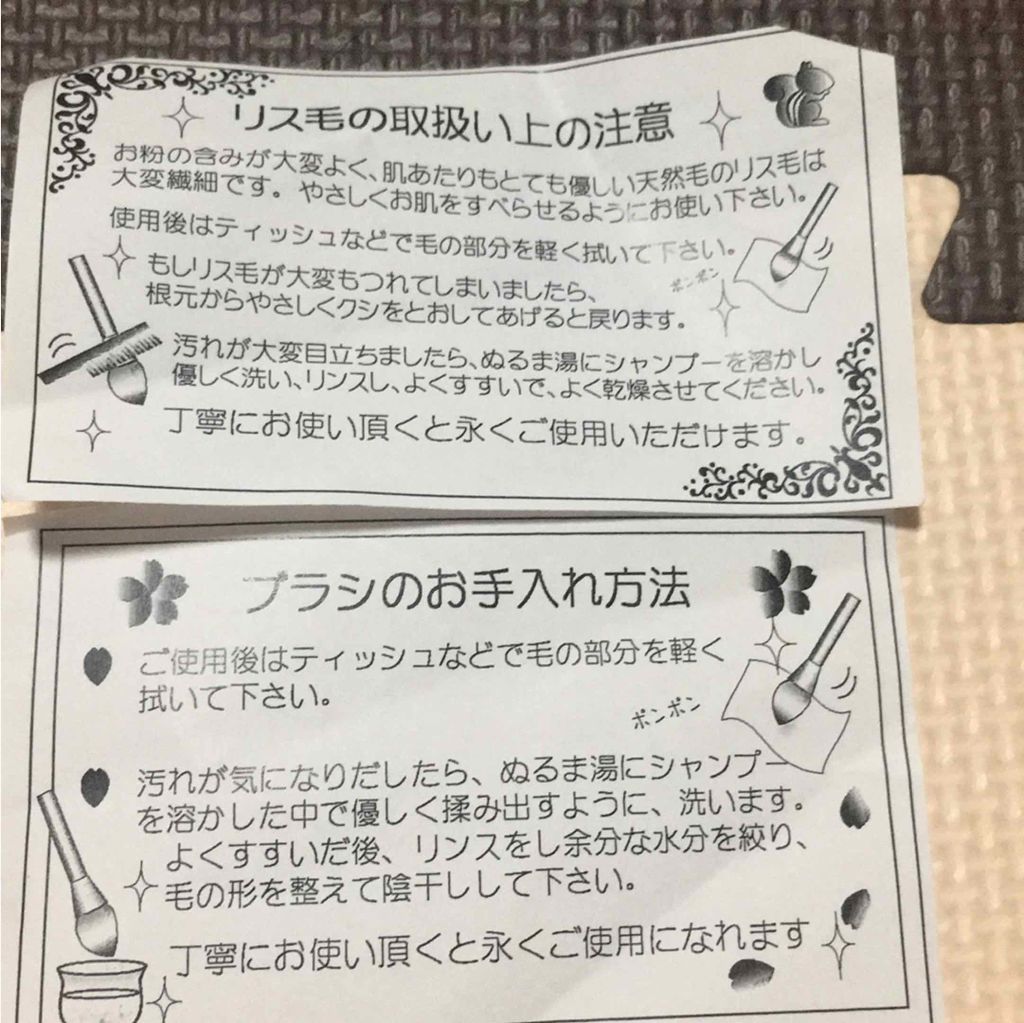 リス毛の取扱い上の注意
お粉の含みが大変よく、肌あたりもとても優しい天然毛のリス毛は
大変繊細です。やさしくお肌をすべらせるようにお使い下さい。
使用後はティッシュなどで毛の部分を軽く拭いて下さい。
ポンポン
もしリス毛が大変もつれてしまいましたら、
根元からやさしくクシをとおしてあげると戻ります。
汚れが大変目立ちましたら、ぬるま湯にシャンプーを溶かし
優しく洗い、リンスし、よくすすいで、よく乾燥させてください。
丁寧にお使い頂くと永くご使用いただけます。
ブラシのお手入れ方法
ご使用後はティッシュなどで毛の部分を軽く
拭いて下さい。
ポンポン
汚れが気になりだしたら、ぬるま湯にシャンプー
を溶かした中で優しく揉み出すように、洗います。
よくすすいだ後、リンスをし余分な水分を絞り、
毛の形を整えて陰干しして下さい。
丁寧にお使い頂くと永くご使用になれます